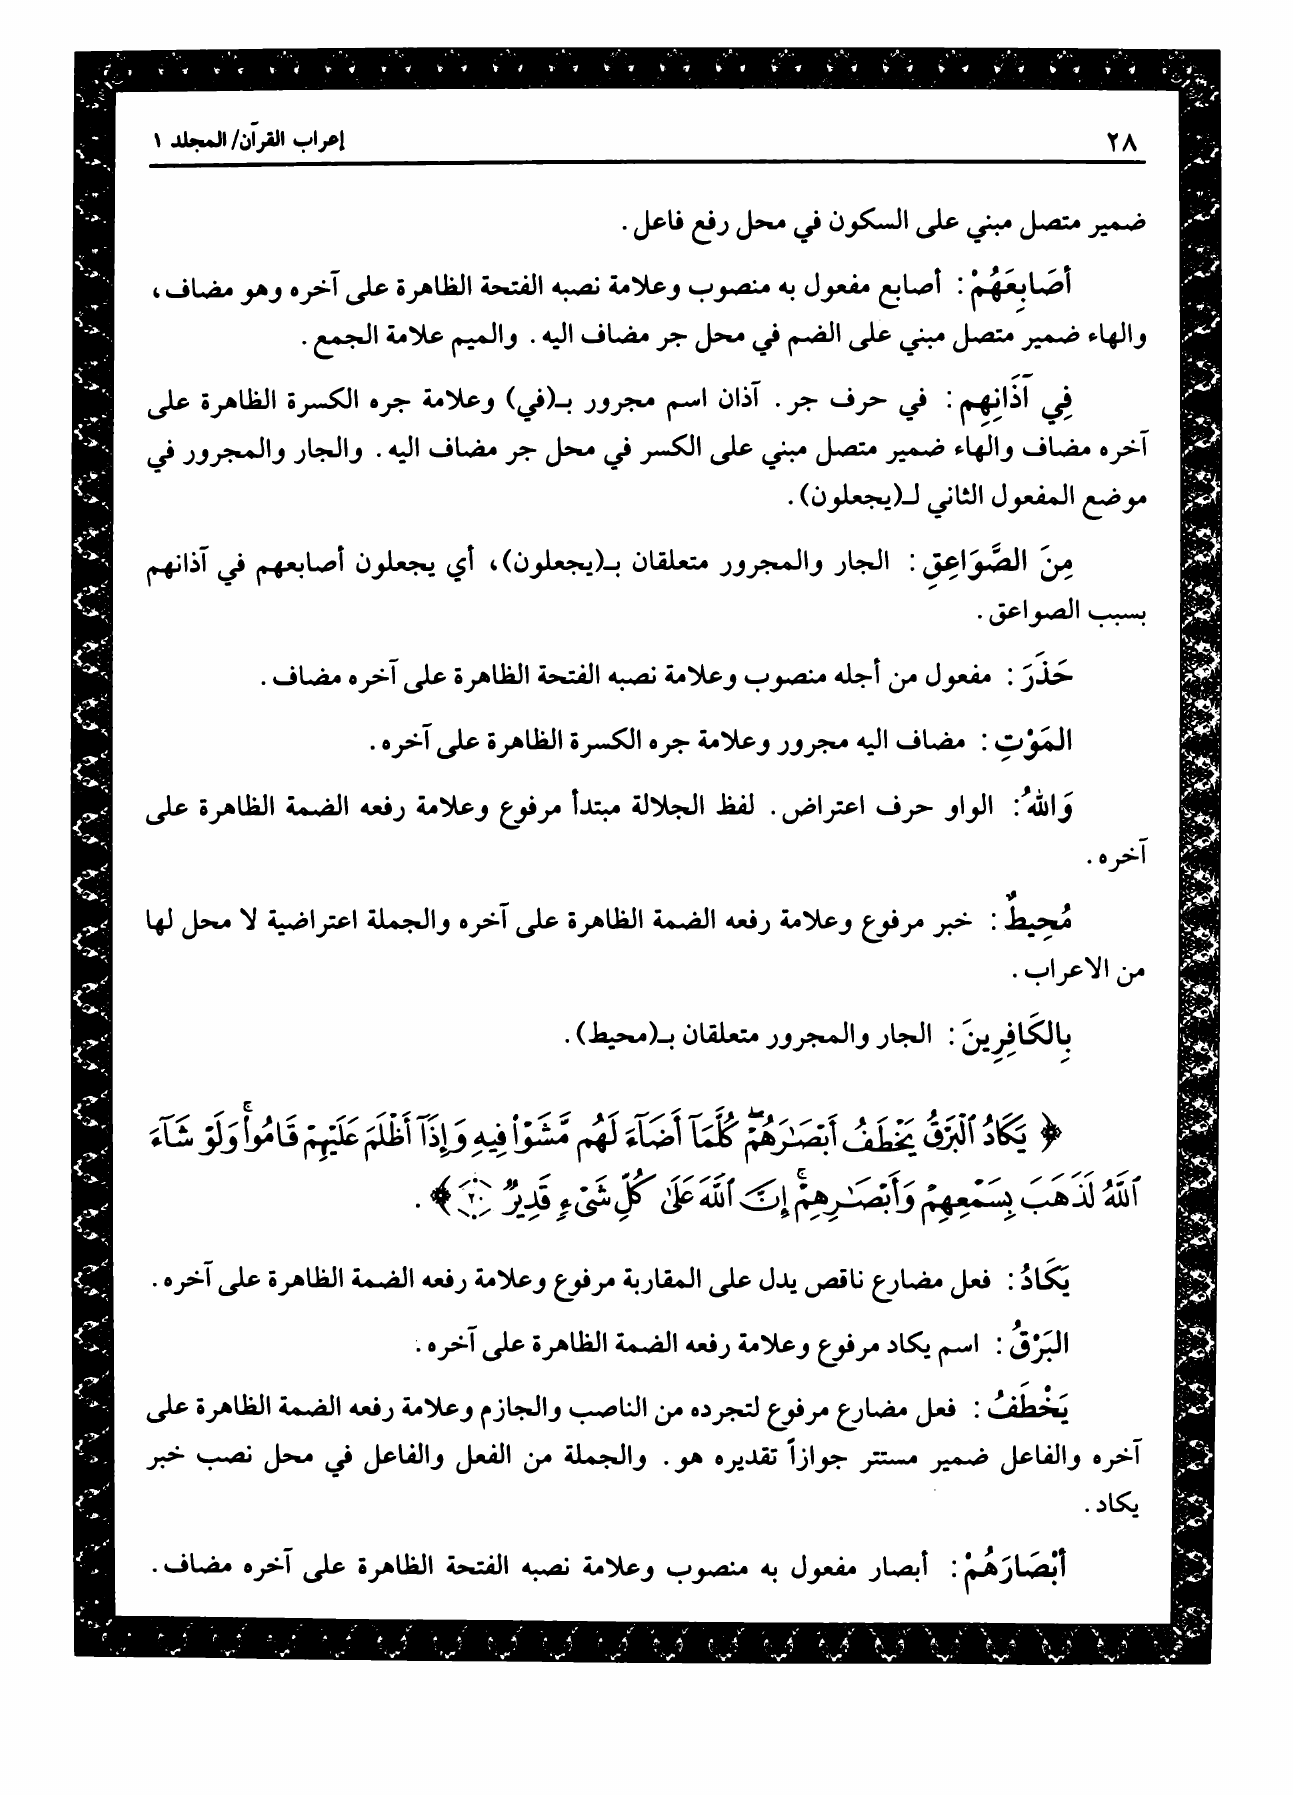 ٢٨
إعراب القرآن/ المجلد ١
ضمير متصل مبني على السكون في محل رفع فاعل.
أصَابِعَهُمْ: أصابع مفعول به منصوب وعلامة نصبه الفتحة الظاهرة على آخره وهو مضاف،
والهاء ضمير متصل مبني على الضم في محل جر مضاف اليه. والميم علامة الجمع.
فِي آذَانِهِم: في حرف جر. آذان اسم مجرور بـ(في) وعلامة جره الكسرة الظاهرة على
آخره مضاف والهاء ضمير متصل مبني على الكسر في محل جر مضاف اليه. والجار والمجرور في
موضع المفعول الثاني لـ(يجعلون).
مِنَ الصَّوَاعِقِ: الجار والمجرور متعلقان بـ(يجعلون)، أي يجعلون أصابعهم في آذانهم
بسبب الصواعق.
حَذَرَ: مفعول من أجله منصوب وعلامة نصبه الفتحة الظاهرة على آخره مضاف.
المَوْتِ: مضاف اليه مجرور وعلامة جره الكسرة الظاهرة على آخره.
وَاللهُ: الواو حرف اعتراض. لفظ الجلالة مبتدأ مرفوع وعلامة رفعه الضمة الظاهرة على
آخره.
مُحِيطٌ: خبر مرفوع وعلامة رفعه الضمة الظاهرة على آخره والجملة اعتراضية لا محل لها
من الاعراب.
بِالكَافِرِينَ: الجار والمجرور متعلقان بـ(محيط).
﴿ يَكَادُ ٱلْبَرْقُ يَخْطَفُ أَبْصَـٰرَهُمْۖ كُلَّمَآ أَضَآءَ لَهُم مَّشَوْا۟ فِيهِ وَإِذَآ أَظْلَمَ عَلَيْهِمْ قَامُوا۟ۚ وَلَوْ شَآءَ
ٱللَّهُ لَذَهَبَ بِسَمْعِهِمْ وَأَبْصَـٰرِهِمْۚ إِنَّ ٱللَّهَ عَلَىٰ كُلِّ شَىْءٍ قَدِيرٌ ٢٠ ﴾.
يَكَادُ: فعل مضارع ناقص يدل على المقاربة مرفوع وعلامة رفعه الضمة الظاهرة على آخره.
البَرْقُ: اسم يكاد مرفوع وعلامة رفعه الضمة الظاهرة على آخره.
يَخْطَفُ: فعل مضارع مرفوع لتجرده من الناصب والجازم وعلامة رفعه الضمة الظاهرة على
آخره والفاعل ضمير مستتر جوازاً تقديره هو. والجملة من الفعل والفاعل في محل نصب خبر
يكاد.
أبْصَارَهُمْ: أبصار مفعول به منصوب وعلامة نصبه الفتحة الظاهرة على آخره مضاف.